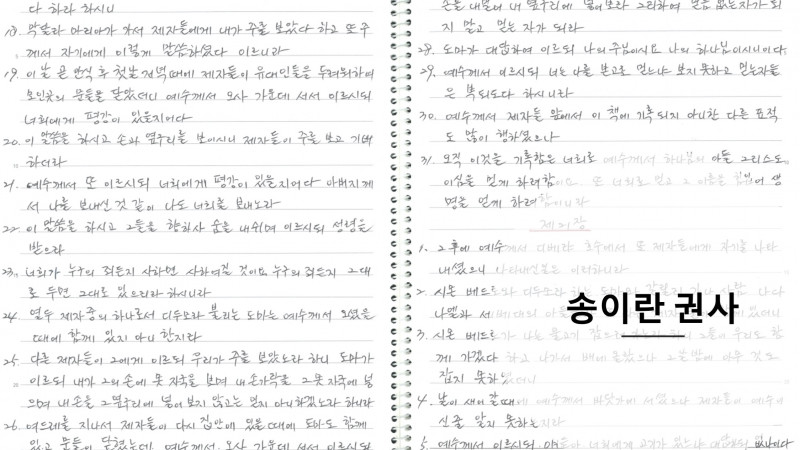 다 하라 하시니
18. 막달라 마리아가 가서 제자들에게 내가 주를 보았다 하고 또 주
께서 자기에게 이렇게 말씀하셨다 이르니라
19. 이 날 곧 안식 후 첫날 저녁 때에 제자들이 유대인들을 두려워하여
모인 곳의 문들을 닫았더니 예수께서 오사 가운데 서서 이르시되
너희에게 평강이 있을지어다
20. 이 말씀을 하시고 손과 옆구리를 보이시니 제자들이 주를 보고 기뻐
하더라
21. 예수께서 또 이르시되 너희에게 평강이 있을지어다 아버지께
서 나를 보내신 것 같이 나도 너희를 보내노라
22. 이 말씀을 하시고 그들을 향하사 숨을 내쉬며 이르시되 성령을
받으라
23. 너희가 누구의 죄든지 사하면 사하여질 것이요 누구의 죄든지 그대
로 두면 그대로 있으리라 하시니라
24. 열두 제자 중의 하나로서 디두모라 불리는 도마는 예수께서 오셨을
때에 함께 있지 아니한지라
25. 다른 제자들이 그에게 이르되 우리가 주를 보았노라 하니 도마가
이르되 내가 그의 손에 못 자국을 보며 내 손가락을 그 못 자국에 넣
으며 내 손을 그 옆구리에 넣어 보지 않고는 믿지 아니하겠노라 하니라
26. 여드레를 지나서 제자들이 다시 집 안에 있을 때에 도마도 함께
있고 문들이 닫혔는데 예수께서 오사 가운데 서서 이르시되
손을 내밀어 내 옆구리에 넣어보라 그리하여 믿음 없는 자가 되
지 말고 믿는 자가 되라
28. 도마가 대답하여 이르되 나의 주님이시요 나의 하나님이시니이다
29. 예수께서 이르시되 너는 나를 본고로 믿느냐 보지 못하고 믿는 자들
은 복되도다 하시니라
30. 예수께서 제자들 앞에서 이 책에 기록되지 아니한 다른 표적
도 많이 행하셨으나
31. 오직 이것을 기록함은 너희로 예수께서 하나님의 아들 그리스도
이심을 믿게 하려 함이요 또 너희로 믿고 그 이름을 힘입어 생
명을 얻게 하려 함이니라
제 21장
1. 그 후에 예수께서 디베랴 호수에서 또 제자들에게 자기를 나타
내셨으니 나타내신 일은 이러하니라
2. 시몬 베드로와 디두모라 하는 도마와 갈릴리 가나 사람 나다
나엘과 세베대의
송이란 권사
3. 시몬 베드로가 나는 물고기 잡으러 가노라 하니 그들이 우리도 함
께 가겠다 하고 나가서 배에 올랐으나 그 날 밤에 아무 것도
잡지 못하였더니
4. 날이 새어갈 때에 예수께서 바닷가에 서셨으나 제자들이 예수이
신 줄 알지 못하는지라
5. 예수께서 이르시되 얘들아 너희에게 고기가 있느냐 대답하되 없나이다